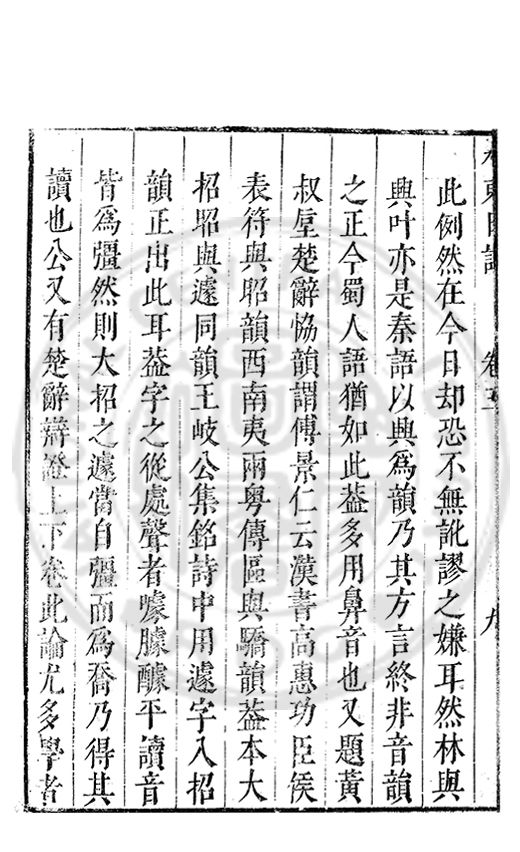 水東日記 卷 九
此例然在今日却恐不無訛謬之嫌耳然林與
興叶亦是秦語以興爲韻乃其方言終非音韻
之正今蜀人語猶如此葢多用鼻音也又題黃
叔垕楚辭恊韻謂傅景仁云漢書高惠功臣侯
表符與昭韻西南夷兩粤傳區與驕韻葢本大
招昭與遽同韻王岐公集銘詩中用遽字入招
韻正出此耳葢字之從處聲者噱臄醵平讀音
皆爲彊然則大招之遽當自彊而爲喬乃得其
讀也公又有楚辭辯證上下卷此論尤多學者